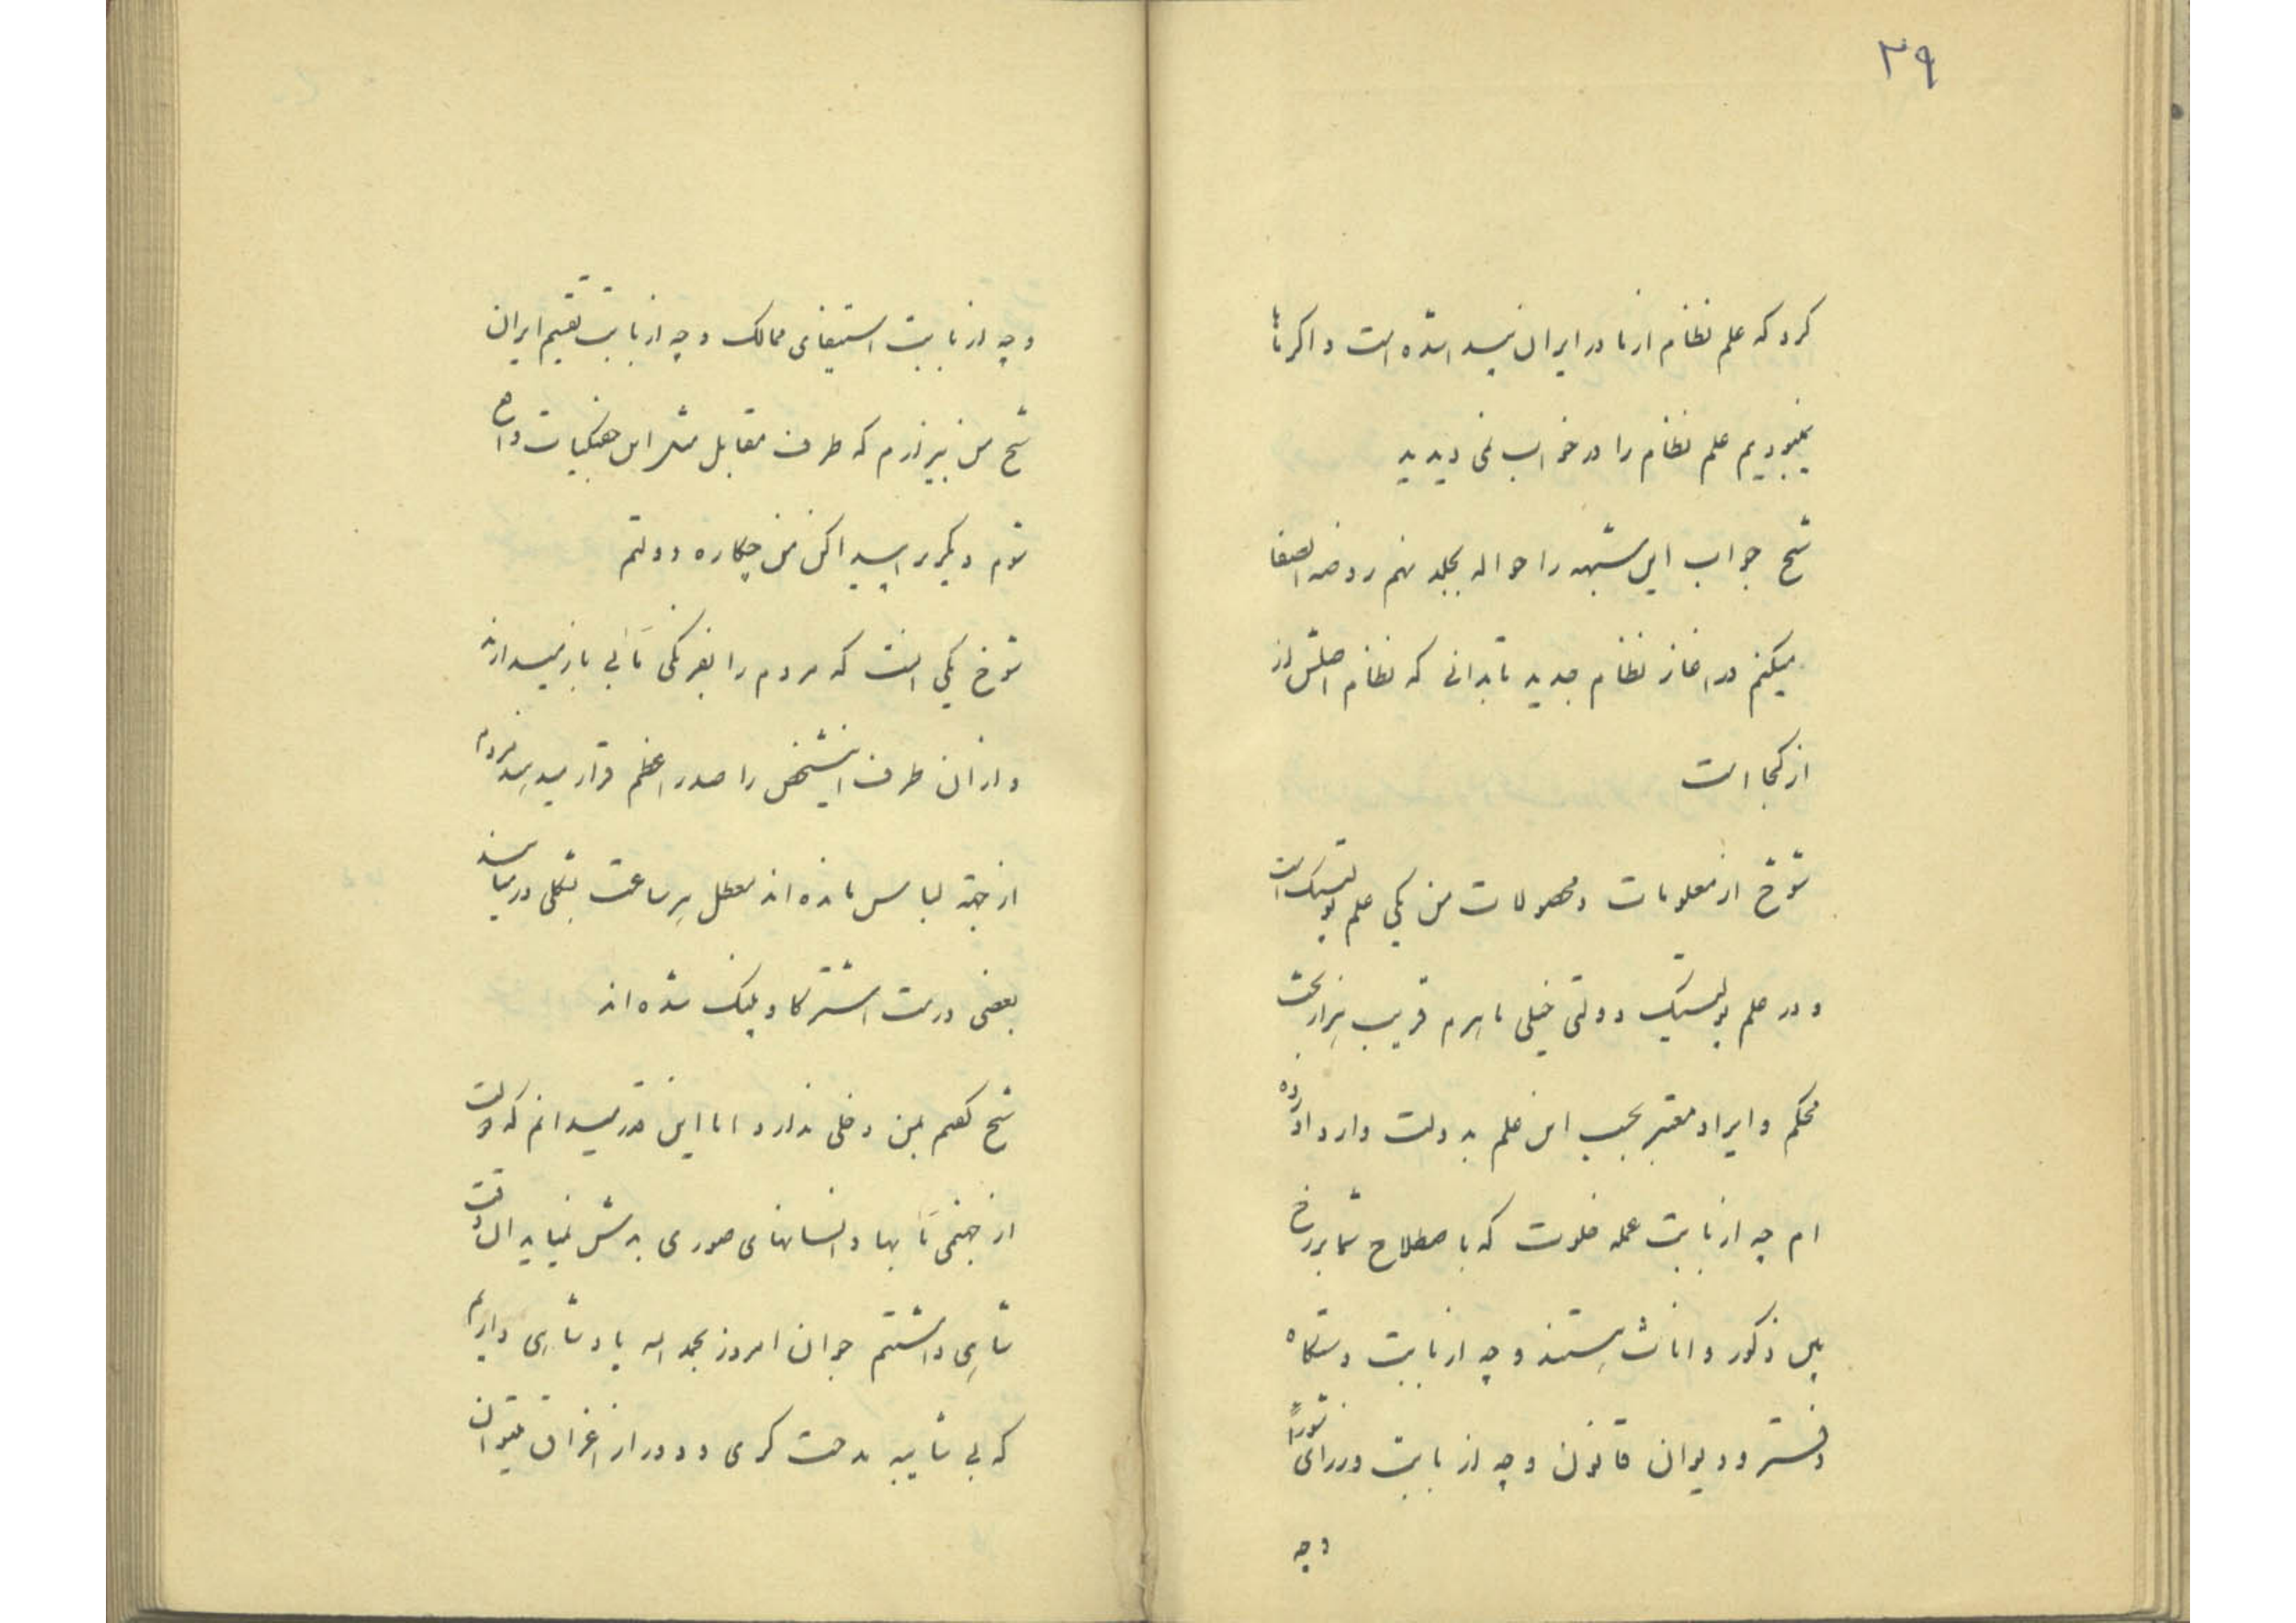 ۳۹
کرد که علم نظام از ما در ایران پیدا شده است و اگر ما
نمیبودیم علم نظام را در خواب نمی دیدید
شیخ جواب این شبهه را حواله بجلد نهم روضه الصفا
میکنم در اغاز نظام جدید تا بدانی که نظام اصلش از
از کجا است
شوخ از معلومات و محصولات من یکی علم پولتیک است
و در علم پولتیک دولتی خیلی ماهرم قریب هزار بحث
محکم و ایراد معتبر بحسب این علم به دولت وارد اورده
ام چه از بابت عمله خلوت که باصطلاح شما برزخ
بین ذکور و اناث هستند و چه از بابت دستگاه
دفتر و دیوان قانون و چه از بابت وزرای شورا
و چه
و چه از بابت استیفای ممالک و چه از بابت تقسیم ایران
شیخ من نمیپردازم که طرف مقابل مثل این جفنگیات واقع
شوم دیگری را پیدا کن من چکاره دولتم
شوخ یکی انست که مردم را بفرنگی مابی باز میدارند
و از ان طرف اینشخص را صدر اعظم قرار میدهند مردم
از جهة لباس مانده اند معطل هر ساعت بشکلی در میایند
بعضی درست اشتر گاو پلنگ شده اند
شیخ گفتم بمن دخلی ندارد اما این قدر میدانم که دولت
از جهنمی مابها و انسانهای صوری بدش نمیاید ان وقت
شاهی داشتم جوان امروز بحمد اله پادشاهی داریم
که بی شایبه مدحت گری و دور از اغراق میتوان